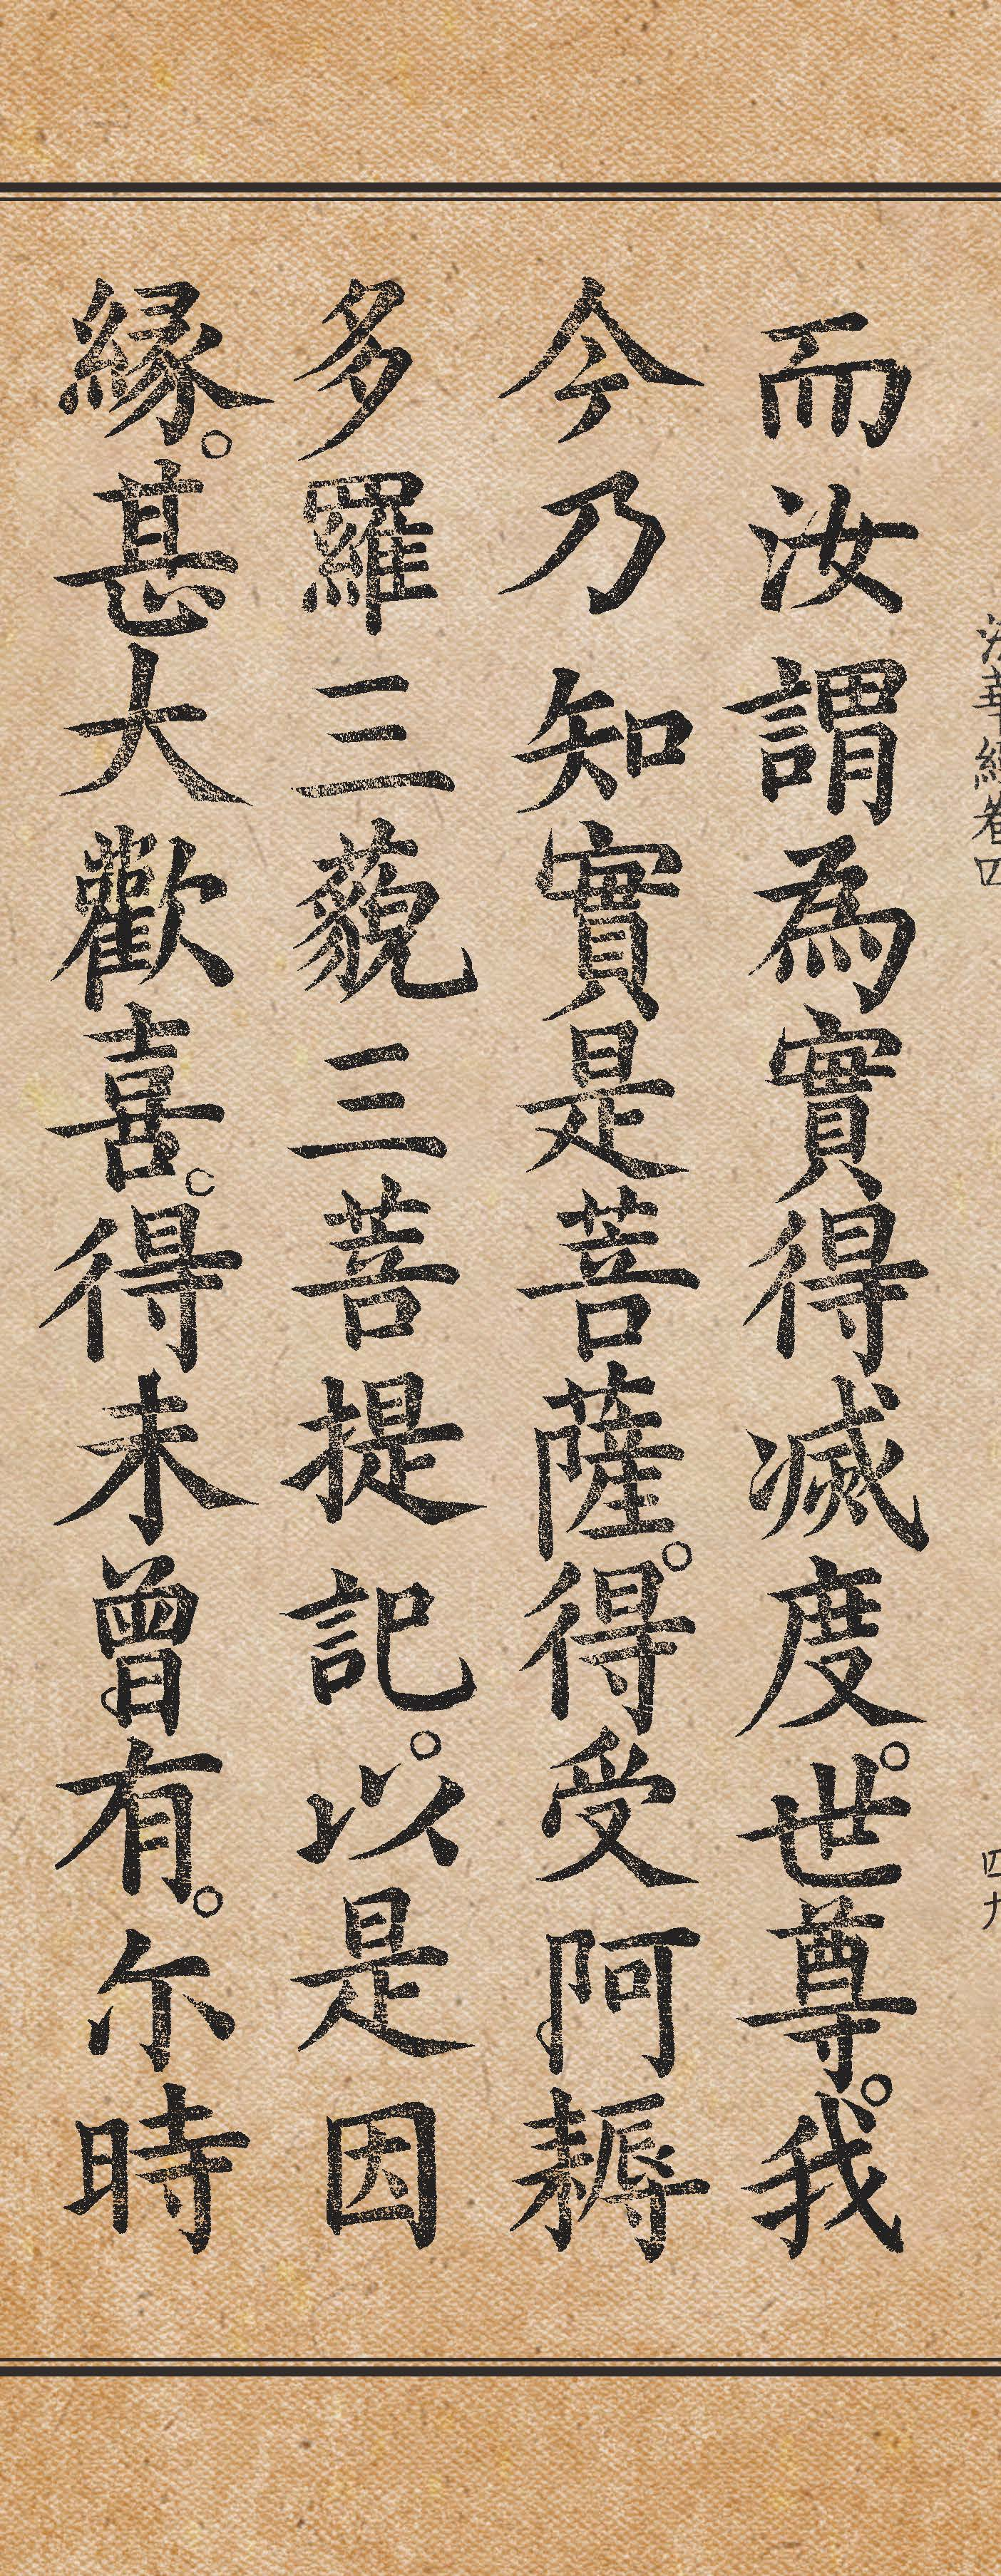 法華經卷四 四九
而汝謂為實得滅度。世尊。我
今乃知實是菩薩。得受阿耨
多羅三藐三菩提記。以是因
緣。甚大歡喜。得未曾有。尔時